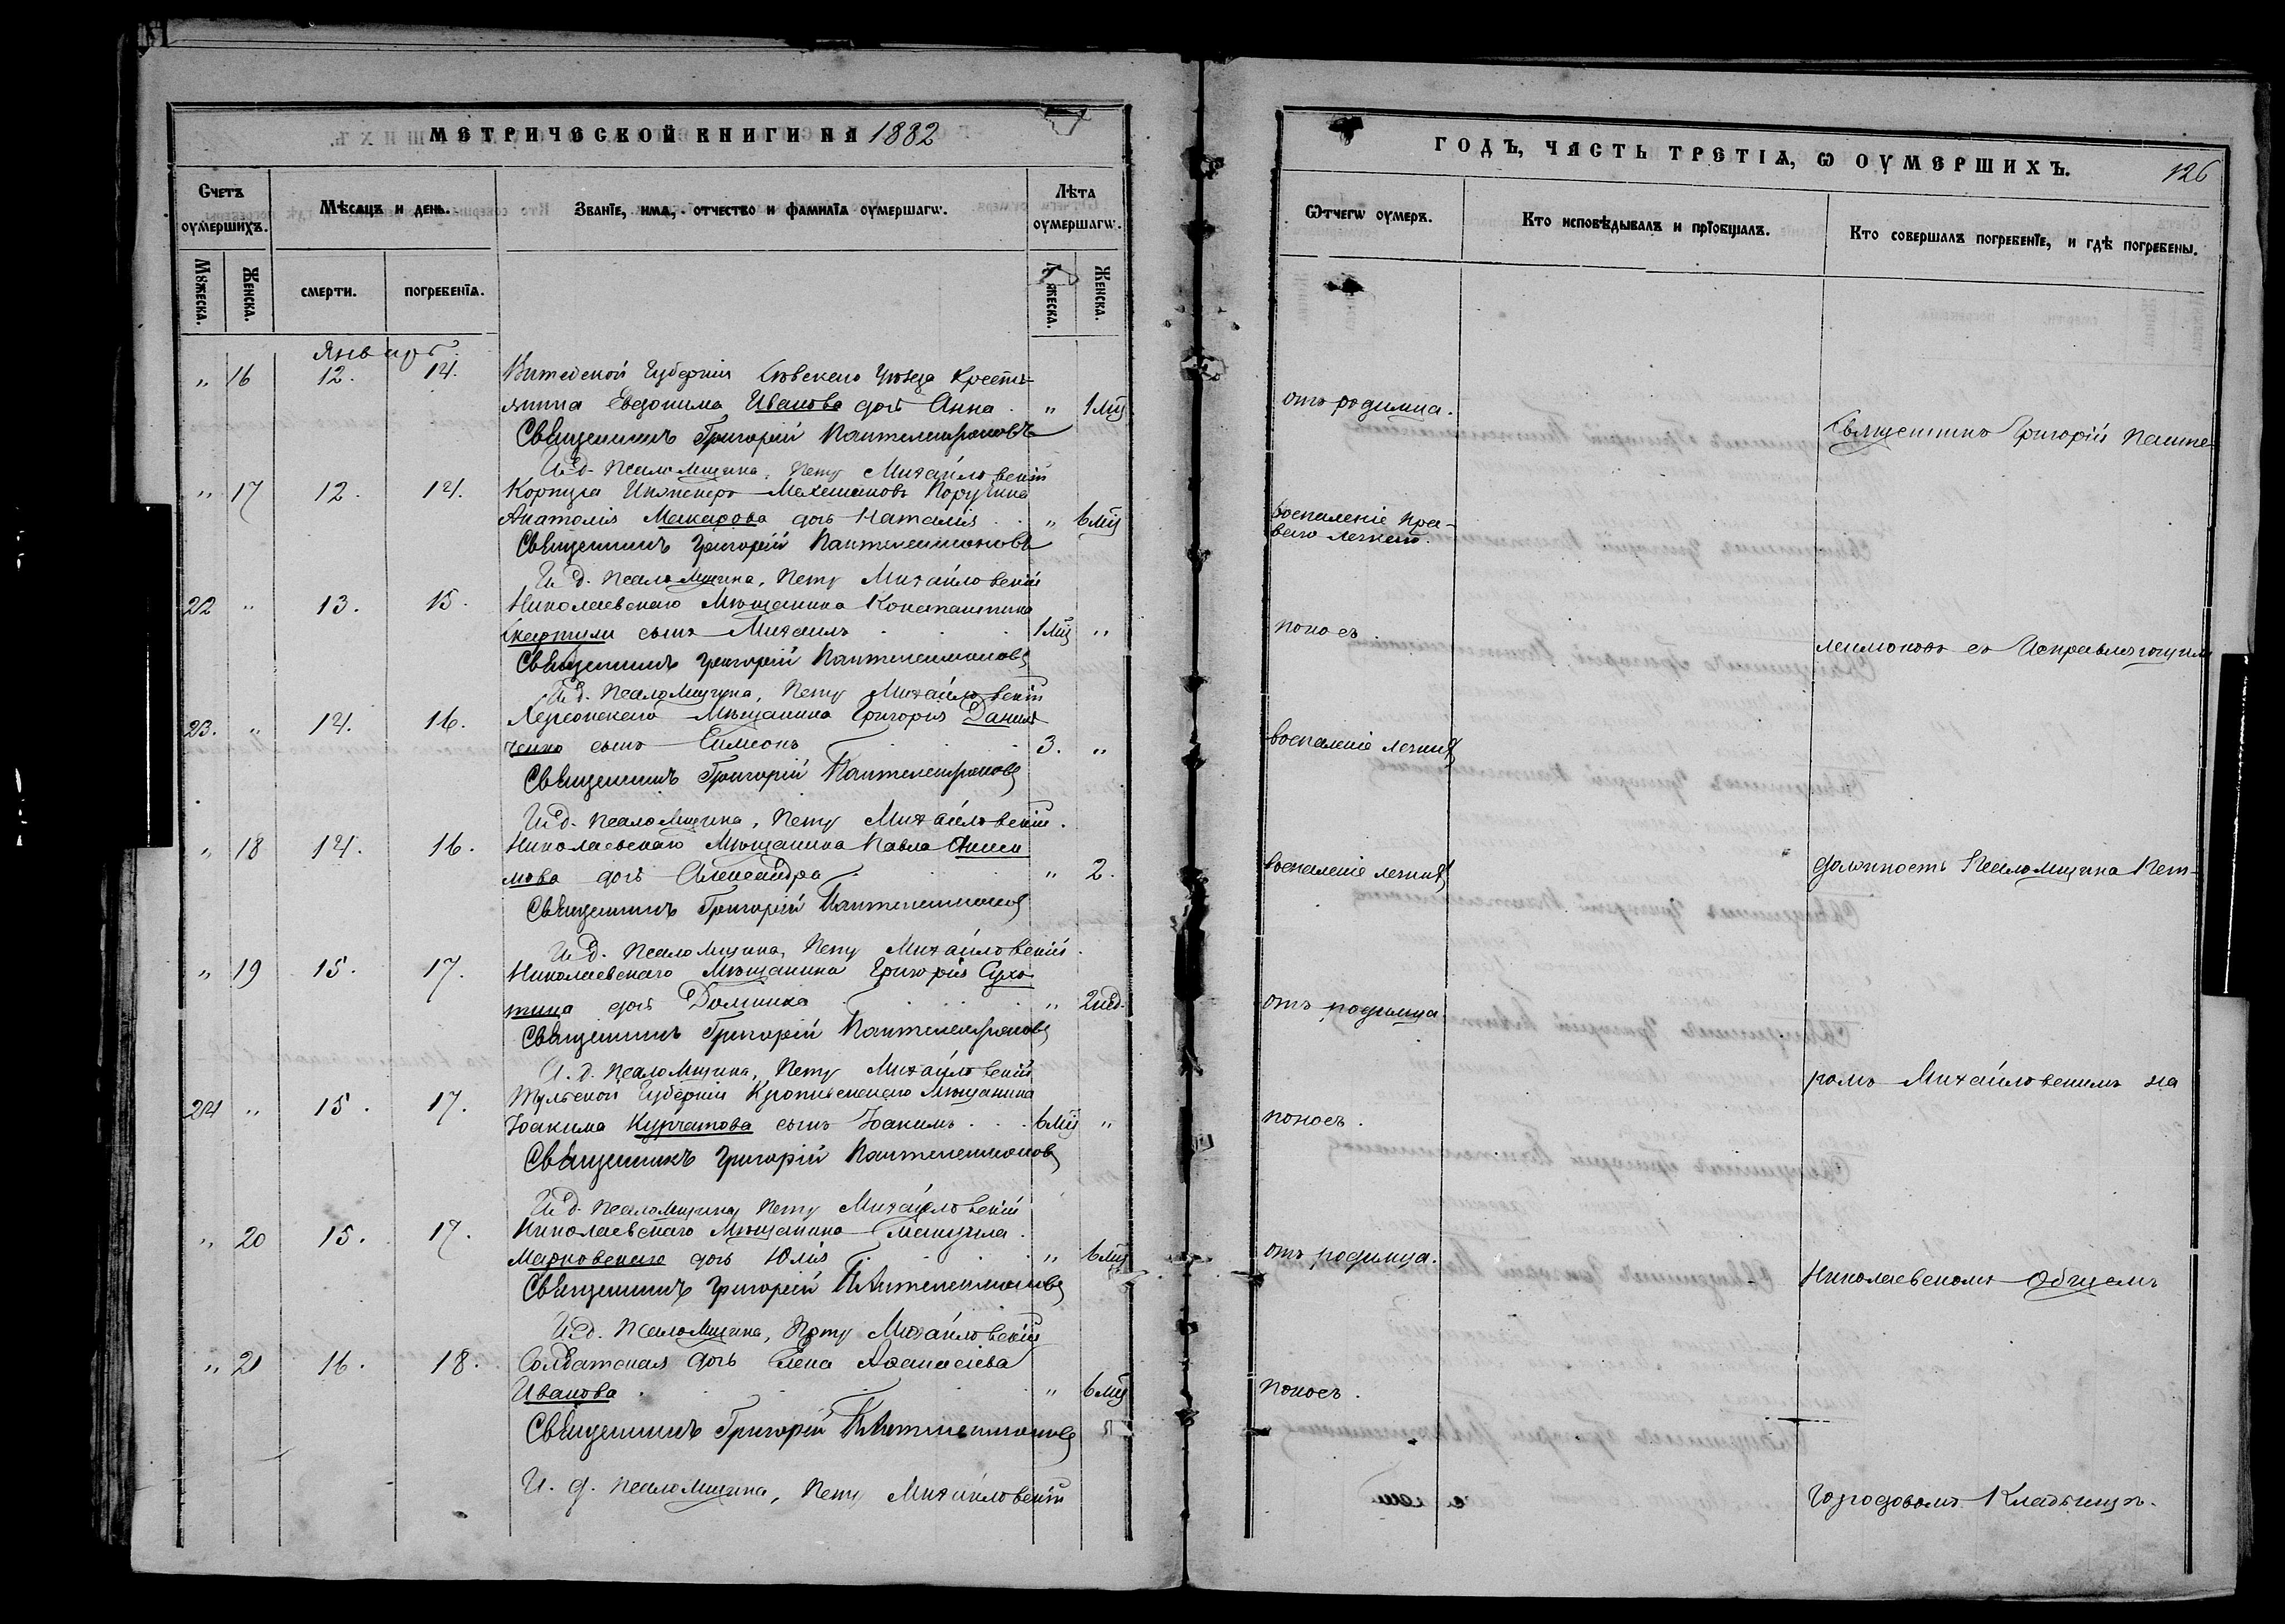 МЕТРИЧЕСКОЙ КНИГИ НА 1882
Счетъ оумершихъ.
Мѣсяцъ и день.
Званіе, имя, отчество и фамилія оумершагѡ.
Лѣта оумершагѡ.
Мꙋжеска.
Женска.
смерти.
погребенія.
жеска.
Женска.
Январь.
" 16 12. 14. Губерніи Уѣзда Кресть-
янина Евдокима Иванова дочь Анна . " 1 мц
Священникъ Григорій Пантелеимоновъ
И. д. Псаломщика, Петръ Михайловскій
" 17 12. 14. Корпуса Инженеръ-Механиковъ Поручика
Анатолія Макарова дочь Наталія . . " 6 мц
Священникъ Григорій Пантелеимоновъ
И. д. Псаломщика, Петръ Михайловскій
22 " 13. 15. Николаевскаго Мѣщанина Константина
сынъ Михаилъ . . . 1 мц "
Священникъ Григорій Пантелеимоновъ
И. д. Псаломщика, Петръ Михайловскій
23. " 14. 16. Херсонскаго Мѣщанина Григорія Данил
ченко сынъ Симеонъ . . . 3. "
Священникъ Григорій Пантелеимоновъ
И. д. Псаломщика, Петръ Михайловскій.
" 18 14. 16. Николаевскаго Мѣщанина Павла Аниси
мова дочь Александра . . . " 2.
Священникъ Григорій Пантелеимоновъ
И. д. Псаломщика, Петръ Михайловскій.
" 19 15. 17. Николаевскаго Мѣщанина Григорія
дочь Домника . . . " 2 нед.
Священникъ Григорій Пантелеимоновъ
И. д. Псаломщика, Петръ Михайловскій
24 " 15. 17. Тульской Губерніи Мѣщанина
Іоакима Курчатова сынъ Іоакимъ . . . 6 мц "
Священникъ Григорій Пантелеимоновъ
И. д. Псаломщика Петръ Михайловскій
" 20 15. 17. Николаевскаго Мѣщанина
Марковскаго дочь Юлія . . . " 6 мц
Священникъ Григорій Пантелеимоновъ
И. д. Псаломщика, Петръ Михайловскій
" 21 16. 18. Солдатская дочь Елена Аѳанасіева
Иванова . . . " 6 мц
Священникъ Григорій Пантелеимоновъ
И. д. Псаломщика, Петръ Михайловскій
ГОДЪ, ЧАСТЬ ТРЕТІѦ, Ѡ ОУМЕРШИХЪ.
126
Ѿчегѡ оумеръ.
Кто исповѣдывалъ и пріобщалъ.
Кто совершалъ погребеніе, и гдѣ погребены.
отъ родимца.
Священникъ Григорій Панте-
воспаленіе пра-
ваго легкаго.
поносъ.
леимоновъ съ Исправляющимъ
воспаленіе легкихъ
воспаленіе легкихъ
должность Псаломщика Пет-
отъ родимца
ромъ Михайловскимъ на
поносъ.
отъ родимца.
Николаевскомъ Общемъ
поносъ.
Городовомъ Кладбищѣ.